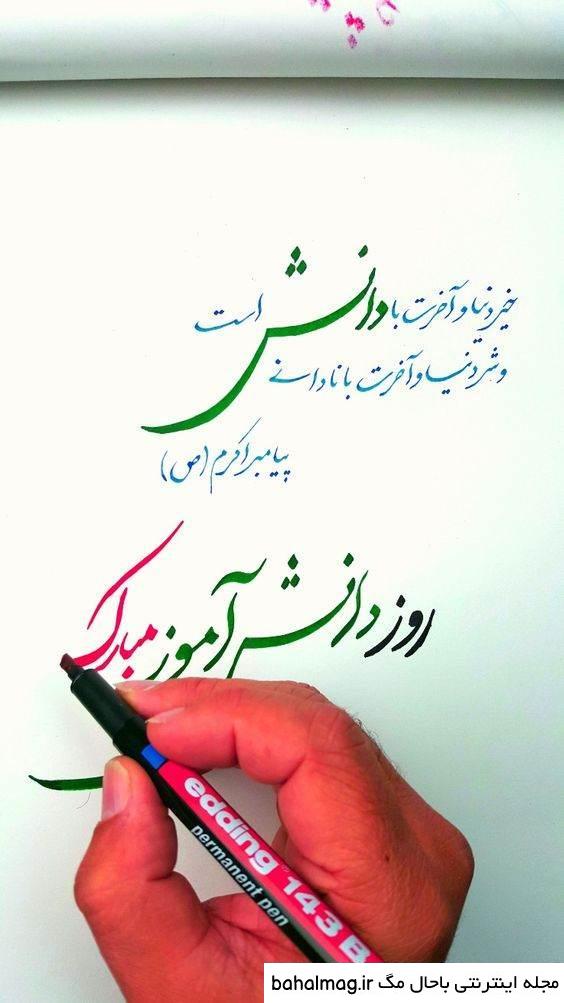 خیر دنیا و آخرت با دانش است
و شر دنیا و آخرت با نادانی
پیامبر اکرم (ص)
روز دانش آموز مبارک
edding 143 B
permanent pen
مجله اینترنتی باحال مگ bahalmag.ir